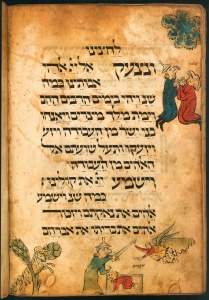 ונצעק אל יי אלהי
אבותינו כמה
ויהי בימים הרבים ההם
וימת מלך מצרים ויאנחו
בני ישר מן העבודה
ויזעקו ותעל שועתם אל
האלהים מן העבודה
וישמע יי את קולינו
כמה שני וישמע
אלהים את נאקתם ויזכור
אלהים את בריתו את אברהם